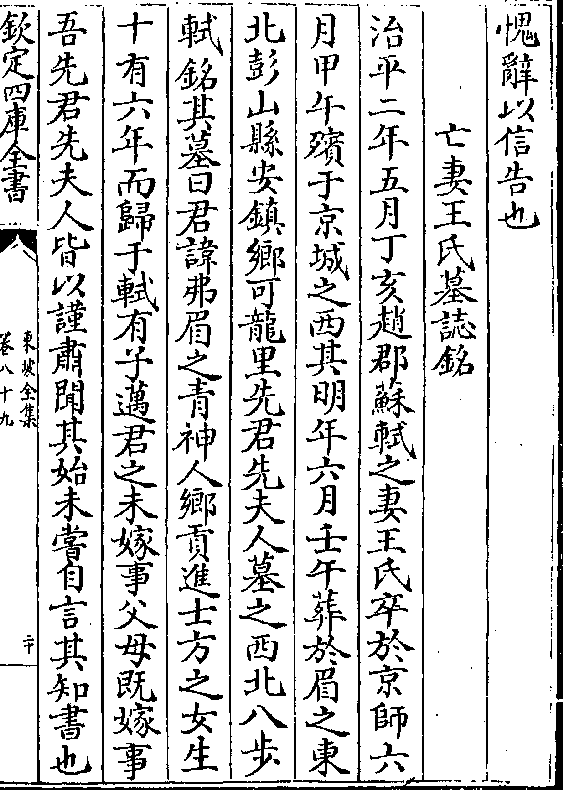 愧辭以信告也
亡妻王氏墓誌銘
治平二年五月丁亥趙郡蘇軾之妻王氏卒於京師六
月甲午殯于京城之西其明年六月壬午葬於眉之東
北彭山縣安鎮鄉可龍里先君先夫人墓之西北八步
軾銘其墓曰君諱弗眉之青神人鄉貢進士方之女生
十有六年而歸于軾有子邁君之未嫁事父母既嫁事
吾先君先夫人皆以謹肅聞其始未嘗自言其知書也
欽定四庫全書
東坡全集
卷八十九
二十